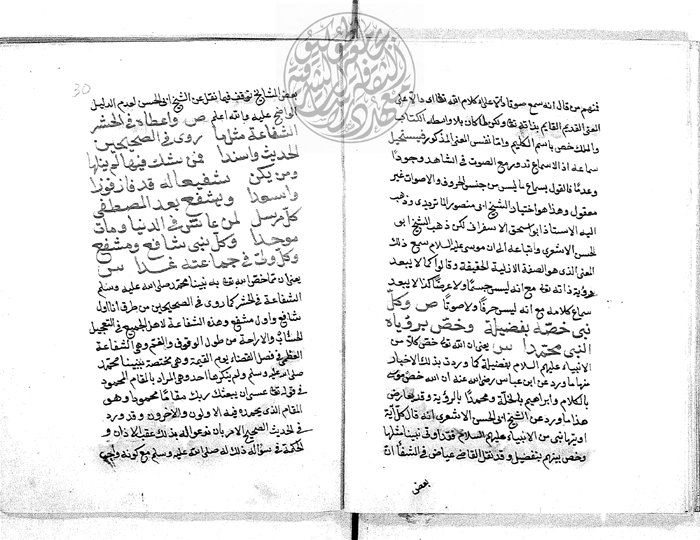 فمنهم من قال انه سمع صوتا دالا على كلام الله تعالى اي دالا على
المعنى القديم القايم بذاته تعالى ولكن لما كان بلا واسطة الكتاب
والملك خص باسم الكليم واما نفس المعنى المذكور فيستحيل
سماعه اذ الاسماع تدور مع الصوت في الشاهد وجودا
وعدما فالقول بسماع ما ليس من جنس الحروف والاصوات غير
معقول وهذا هو اختيار الشيخ ابي منصور الماتريدي وذهب
اليه الاستاذ ابو اسحق الاسفرايني لكن ذهب الشيخ ابو
الحسن الاشعري واتباعه الى ان موسى عليه السلام سمع ذلك
المعنى الذي هو الصفة الازلية الحقيقة وقالوا كما لا يبعد
رؤية ذاته تعالى مع انه ليس جسما ولا عرضا كذا لا يبعد
سماع كلامه مع انه ليس حرفا ولا صوتا ص وكل
نبي خصه بفضيلة وخص برؤياه
النبي محمدا س يعني ان الله تعالى خص كلا من
الانبياء عليهم السلام بفضيلة كما وردت بذلك الاخبار
منها ما ورد عن ابن عباس رضي الله عنه ان الله خص موسى
بالكلام وابراهيم بالخلة ومحمدا بالرؤية وقد يعارض
هذا ما ورد عن الشيخ ابي الحسن الاشعري انه قال كل آية
اوتيها نبي من الانبياء عليهم السلام فقد اوتي نبينا مثلها
وخص بينهم بتفضيل وقد نقل القاضي عياض في الشفا ان
بعض
30
بعض المشايخ توقف فيما نقل عن الشيخ ابي الحسن لعدم الدليل
الواضح عليه والله اعلم ص واعطاه في الحشر
الشفاعة مثل ما روى في الصحيحين
الحديث واسندا فمن شك فيها لم ينلها
ومن يكن شفيعا له قد فاز فوزا
واسعدا ويشفع بعد المصطفى
كل مرسل لمن عاش في الدنيا ومات
موحدا وكل نبي شافع ومشفع
وكل ولي في جماعته غدا س
يعني ان مما خص الله تعالى به نبينا محمد صلى الله عليه وسلم
الشفاعة في الحشر كما روى في الصحيحين من طرق انا اول
شافع واول مشفع وهذه الشفاعة لاهل الجميع في التعجيل
الحساب والاراحة من طول الوقوف والغم وهي الشفاعة
العظمى في فصل القضاء يوم القيمة وهي مختصة بنبينا محمد
صلى الله عليه وسلم ولم ينكرها احد وهي المراد بالمقام المحمود
في قوله تعالى عسى ان يبعثك ربك مقاما محمودا وهو
المقام الذي يحمده فيه الاولون والآخرون وقد ورد
في الحديث الصحيح الامر بان ندعو اله بذلك عقب الاذان و
الحكمة في سؤاله ذلك له صلى الله عليه وسلم مع كونه واجب